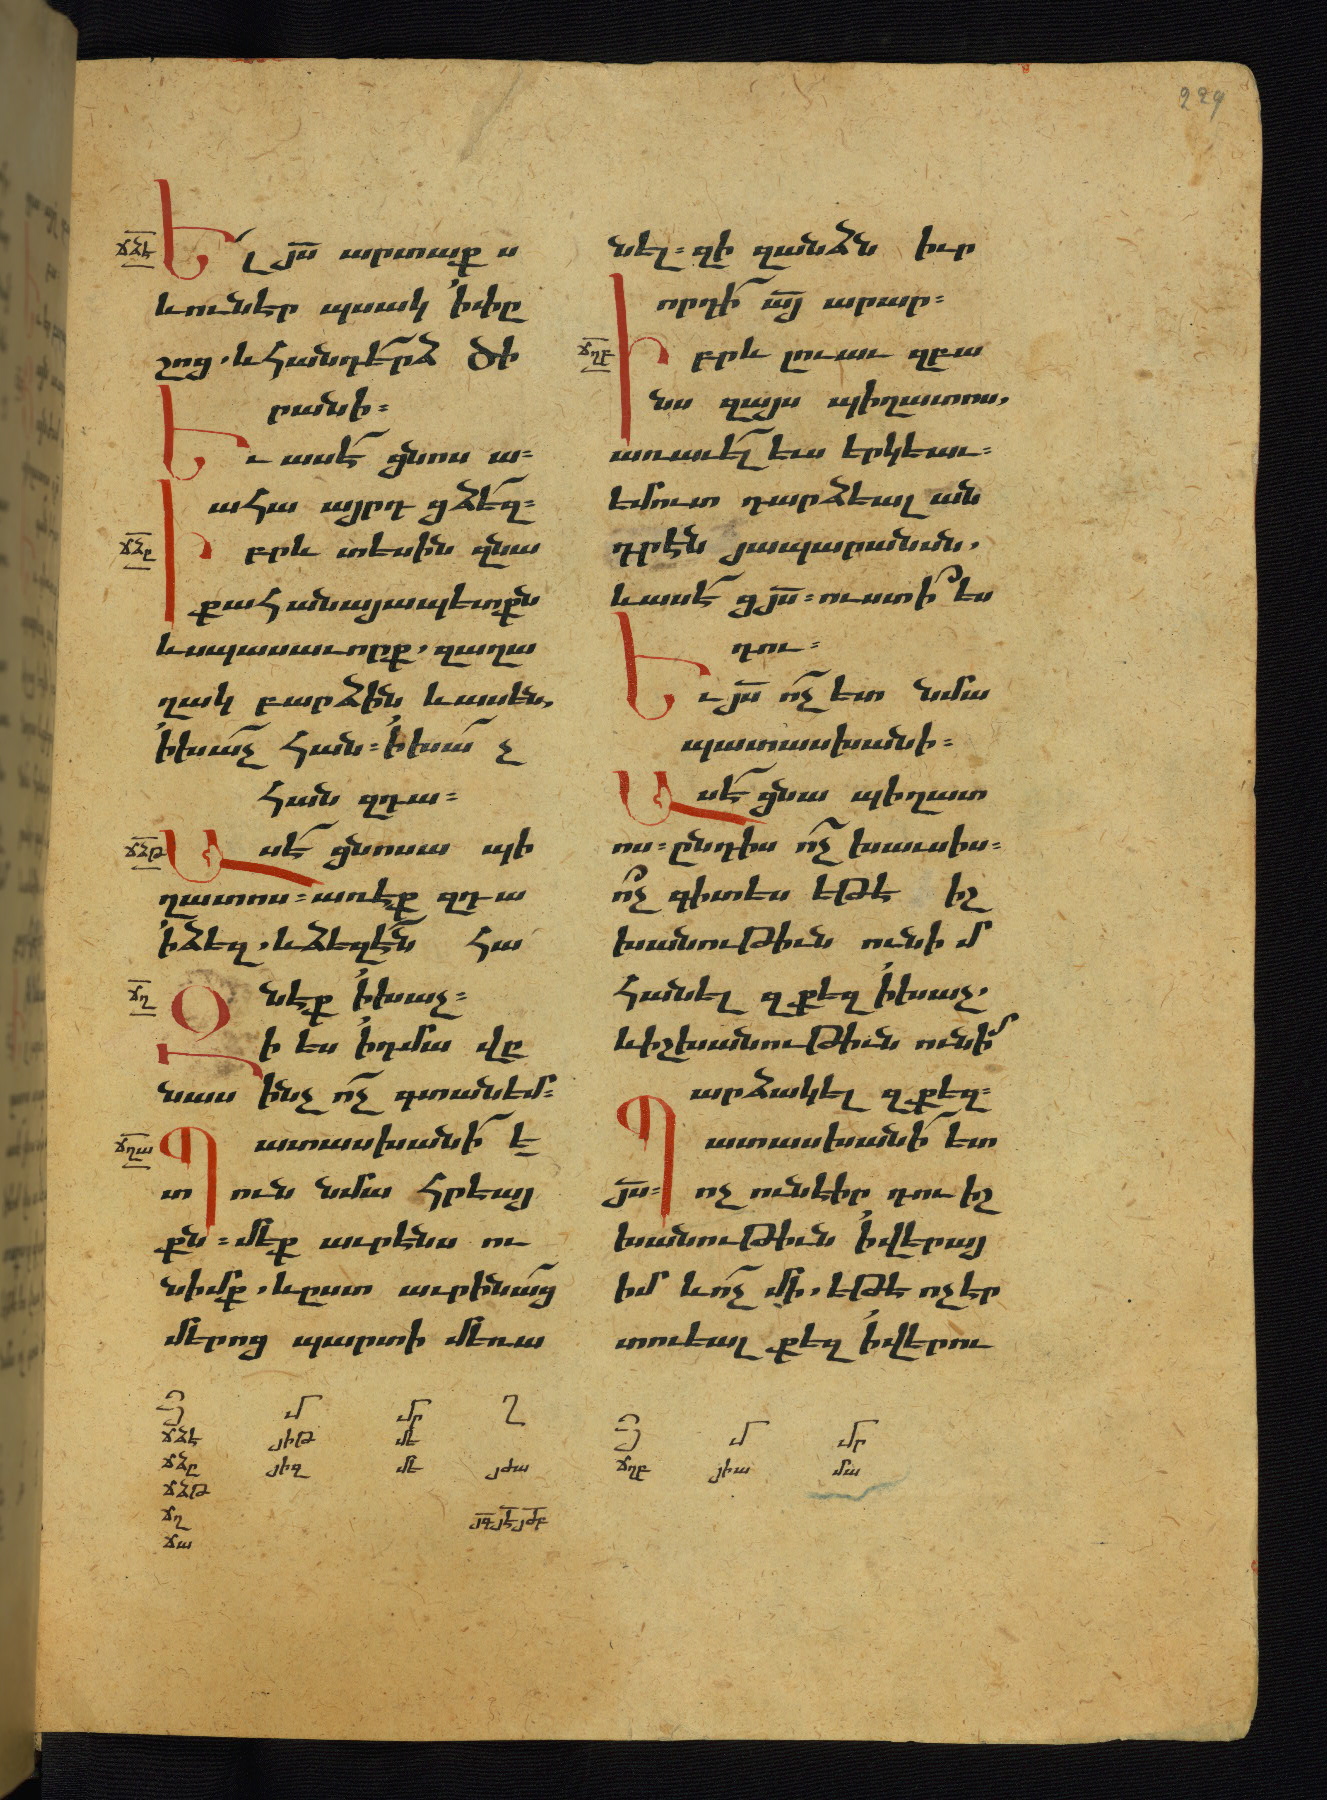 229
ճՁէ
Ել յս արտաքս
և ունէր պսակ ՛ի փը
շոց . և հանդերձ ծի
րանի ։
Եւ ասէ ցնոս ա ։
ահա այրդ ցձեզ ։
ճՁը
Իբրև տեսին զնա
քահանայապետքն
և սպասաւորք , զաղա
ղակ բարձին և ասեն ,
՛ի խաչ հան ։ ՛ի խաչ
հան զդա ։
ճՁթ
Ասէ ցնոսա պի
ղատոս ։ առէք զդա
՛ի ձեզ . և ձեզէն հա
ճղ
նէք ՛ի խաչ ։
Զի ես ՛ի դմա վը
նաս ինչ ոչ գտանեմ ։
ճղա
Պատասխանի ե
տուն նմա հրեայ
քն ։ մեք աւրէնս ու
նիմք . և ըստ աւրինաց
մերոց պարտի մեռա
նել ։ զի զանձն իւր
որդի այ արար ։
ճղբ
Իբրև լուաւ զբա
նս զայս պիղատոս ,
առաւել ևս երկեաւ ։
եմուտ դարձեալ ան
դրէն յապարանսն .
և ասէ ցյս ։ ուստի ես
դու ։
Եւ յս ոչ ետ նմա
պատասխանի ։
Ասէ ցնա պիղատ
ոս ։ ընդիս ոչ խաւսիս ։
ոչ գիտես եթէ իշ
խանութիւն ունիմ
հանել զքեզ ՛ի խաչ .
և իշխանութիւն ունիմ
արձակել զքեզ ։
Պատասխանի ետ
յս ։ ոչ ունէիր դու իշ
խանութիւն ՛ի վերայ
իմ և ոչ մի . եթէ ոչ էր
տուեալ քեզ ՛ի վերու
Յ մ մր Ղ
ճՁէ յիթ մե
ճՁը յիզ մե յժա
ճՁթ
ճղ
ճա
Յ մ մր
ճղբ յիա մա